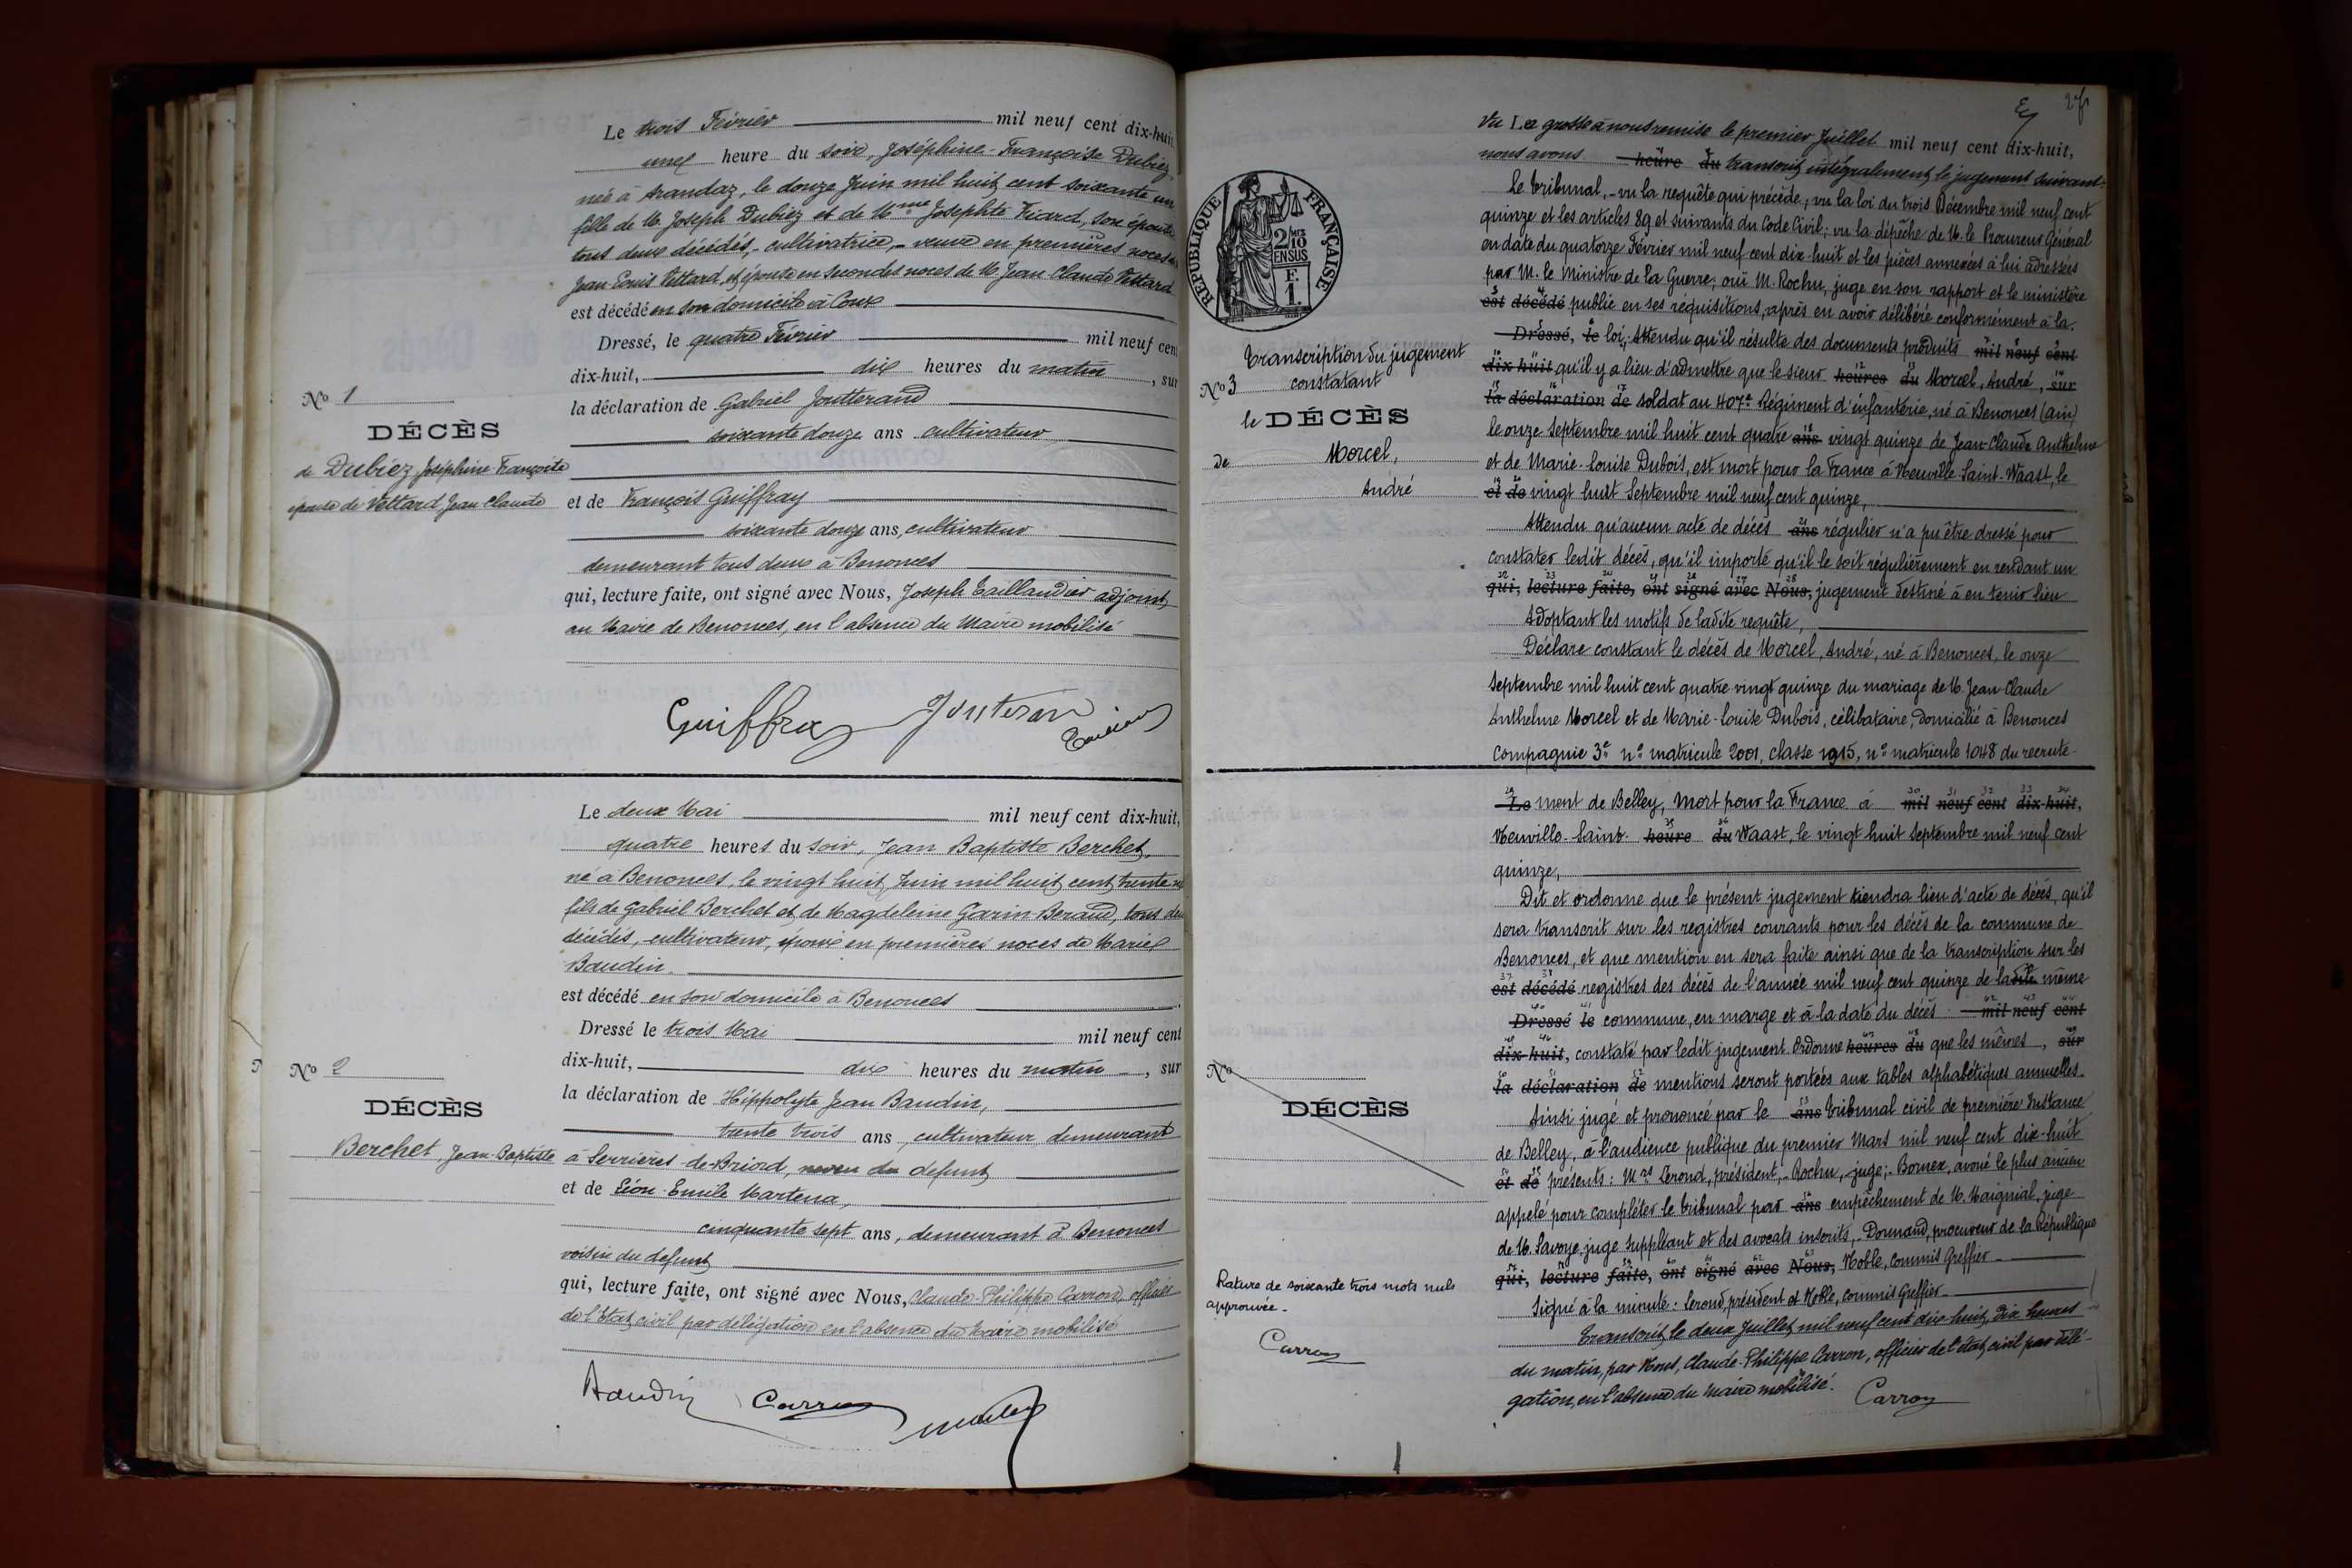 Le trois Février mil neuf cent dix-huit
une heure du soir, Joséphine-Françoise Dubiez,
née à Arandaz, le douze Juin mil huit cent soixante un
fille de M. Joseph Dubiez et de Mme Josephte Picard, son épouse
tous deux décédés, - cultivatrice, - veuve en premières noces de
Jean-Louis Vettard, et épouse en secondes noces de M. Jean Claude Vettard
est décédé en son domicile à Coux
Dressé, le quatre Février mil neuf cent
dix-huit, dix heures du matin, sur
la déclaration de Gabriel Joutterand
soixante douze ans cultivateur
et de François Guiffray
soixante douze ans, cultivateur
demeurant tous deux à Benonces
qui, lecture faite, ont signé avec Nous, Joseph Taillandier adjoint,
au Maire de Benonces, en l'absence du Maire mobilisé
Guiffray Jouteran
No 1
DÉCÈS
de Dubiez, Joséphine Françoise
épouse de Vettard, Jean Claude
Le deux Mai mil neuf cent dix-huit,
quatre heures du soir, Jean Baptiste Berchet,
né à Benonces, le vingt huit Juin mil huit cent trente
fils de Gabriel Berchet et de Magdeleine Garin-Beraud, tous deux
décédés, cultivateur, époux en premières noces de Marie
Baudin
est décédé en son domicile à Benonces
Dressé le trois Mai mil neuf cent
dix-huit, dix heures du matin, sur
la déclaration de Hippolyte Jean Baudin,
trente trois ans, cultivateur demeurant
à Serrières-de-Briord, neveu du defunt
et de Léon-Emile Martena,
cinquante sept ans, demeurant à Benonces
voisin du defunt
qui, lecture faite, ont signé avec Nous, Claude-Philippe Carron, officier
de l'état civil par délégation en l'absence du Maire mobilisé
Baudin Carron
No 2
DÉCÈS
Berchet, Jean-Baptiste
27
Vu La grosse à nous remise le premier Juillet mil neuf cent dix-huit,
nous avons heure du transcrit intégralement le jugement suivant:
Le tribunal, - vu la requête qui précède; vu la loi du trois Décembre mil neuf cent
quinze et les articles 89 et suivants du Code Civil; vu la dépêche de M. le Procureur Général
en date du quatorze Février mil neuf cent dix-huit et les pièces annexées à lui adressées
par M. le Ministre de la Guerre; ouï M. Rochu, juge en son rapport et le ministère
est décédé public en ses réquisitions, après en avoir délibéré conformément à la.
Dressé, le loi; Attendu qu'il résulte des documents produits mil neuf cent
dix-huit qu'il y a lieu d'admettre que le sieur heures du Morcel, André, sur
la déclaration de soldat au 407e Régiment d'infanterie, né à Benonces (Ain)
le onze Septembre mil huit cent quatre ans vingt quinze de Jean-Claude Anthelme
et de Marie-Louise Dubois, est mort pour la France à Neuville-Saint-Waast, le
et de vingt huit Septembre mil neuf cent quinze,
Attendu qu'aucun acte de décès ans régulier n'a pu être dressé pour
constater ledit décès, qu'il importe qu'il le soit régulièrement en rendant un
qui, lecture faite, ont signé avec Nous, jugement destiné à en tenir lieu
Adoptant les motifs de ladite requête,
Déclare constant le décès de Morcel, André, né à Benonces, le onze
Septembre mil huit cent quatre vingt quinze du mariage de M. Jean-Claude
Anthelme Morcel et de Marie-Louise Dubois, célibataire, domicilié à Benonces
compagnie 3e no matricule 2001, classe 1915, no matricule 1048 du recrute-
Le ment de Belley, Mort pour la France à mil neuf cent dix-huit,
Neuville-Saint- heure du Waast, le vingt huit Septembre mil neuf cent
quinze,
Dit et ordonne que le présent jugement tiendra lieu d'acte de décès, qu'il
sera transcrit sur les registres courants pour les décès de la commune de
Benonces, et que mention en sera faite ainsi que de la transcription sur les
est décédé registres des décès de l'année mil neuf cent quinze de ladite même
Dressé le commune, en marge et à la date du décès mil neuf cent
dix-huit, constaté par ledit jugement. Ordonne heures du que les mêmes, sur
la déclaration de mentions seront portées aux tables alphabétiques annuelles.
Ainsi jugé et prononcé par le ans tribunal civil de première Instance
de Belley, à l'audience publique du premier Mars mil neuf cent dix-huit
et de présents: Mrs Lerond, président, - Rochu, juge; - Bornex, avoué le plus ancien
appelé pour compléter le tribunal par ans empêchement de M. Maignial, juge
de M. Savoye, juge suppléant et des avocats inscrits, - Dornand, procureur de la République
qui, lecture faite, ont signé avec Nous, Noble, commis Greffier
Signé à la minute: Lerond, président et Noble, commis Greffier
Transcrit, le deux Juillet, mil neuf cent dix-huit, dix heures
du matin, par Nous, Claude-Philippe Carron, officier de l'état civil par délé-
gation, en l'absence du Maire mobilisé.
Carron
RÉPUBLIQUE FRANÇAISE
2/10
EN SUS
F.
1.
Transcription du jugement
constatant
No 3
le DÉCÈS
de Morcel,
André
No
DÉCÈS
Rature de soixante trois mots nuls
approuvée.
Carron